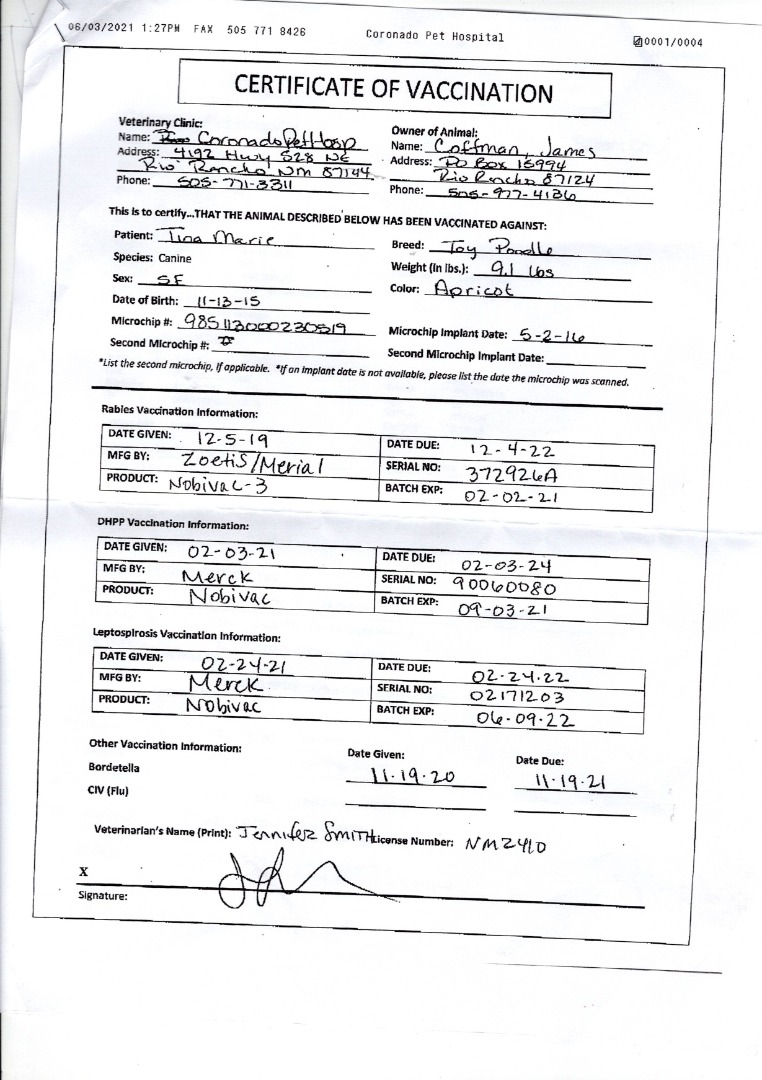 06/03/2021 1:27PM FAX 505 771 8426 Coronado Pet Hospital 0001/0004
CERTIFICATE OF VACCINATION
Veterinary Clinic:
Name: Coronado Pet Hosp
Address: 4192 Hwy 528 NE
Rio Rancho NM 87144
Phone: 505-771-3311
Owner of Animal:
Name: Coffman, James
Address: PO Box 15994
Rio Rancho 87124
Phone: 505-977-4136
This is to certify...THAT THE ANIMAL DESCRIBED BELOW HAS BEEN VACCINATED AGAINST:
Patient: Tina Marie Breed: Toy Poodle
Species: Canine Weight (in lbs.): 9.1 lbs
Sex: SF Color: Apricot
Date of Birth: 11-13-15
Microchip #: 985113000230519 Microchip Implant Date: 5-2-16
Second Microchip #: Second Microchip Implant Date:
*List the second microchip, if applicable. *If an implant date is not available, please list the date the microchip was scanned.
Rabies Vaccination Information:
DATE GIVEN: 12-5-19 DATE DUE: 12-4-22
MFG BY: Zoetis/Merial SERIAL NO: 372926A
PRODUCT: Nobivac-3 BATCH EXP: 02-02-21
DHPP Vaccination Information:
DATE GIVEN: 02-03-21 DATE DUE: 02-03-24
MFG BY: Merck SERIAL NO: 90060080
PRODUCT: Nobivac BATCH EXP: 09-03-21
Leptospirosis Vaccination Information:
DATE GIVEN: 02-24-21 DATE DUE: 02-24-22
MFG BY: Merck SERIAL NO: 02171203
PRODUCT: Nobivac BATCH EXP: 06-09-22
Other Vaccination Information: Date Given: Date Due:
Bordetella 11-19-20 11-19-21
CIV (Flu)
Veterinarian's Name (Print): Jennifer Smith License Number: NM2410
X
Signature: